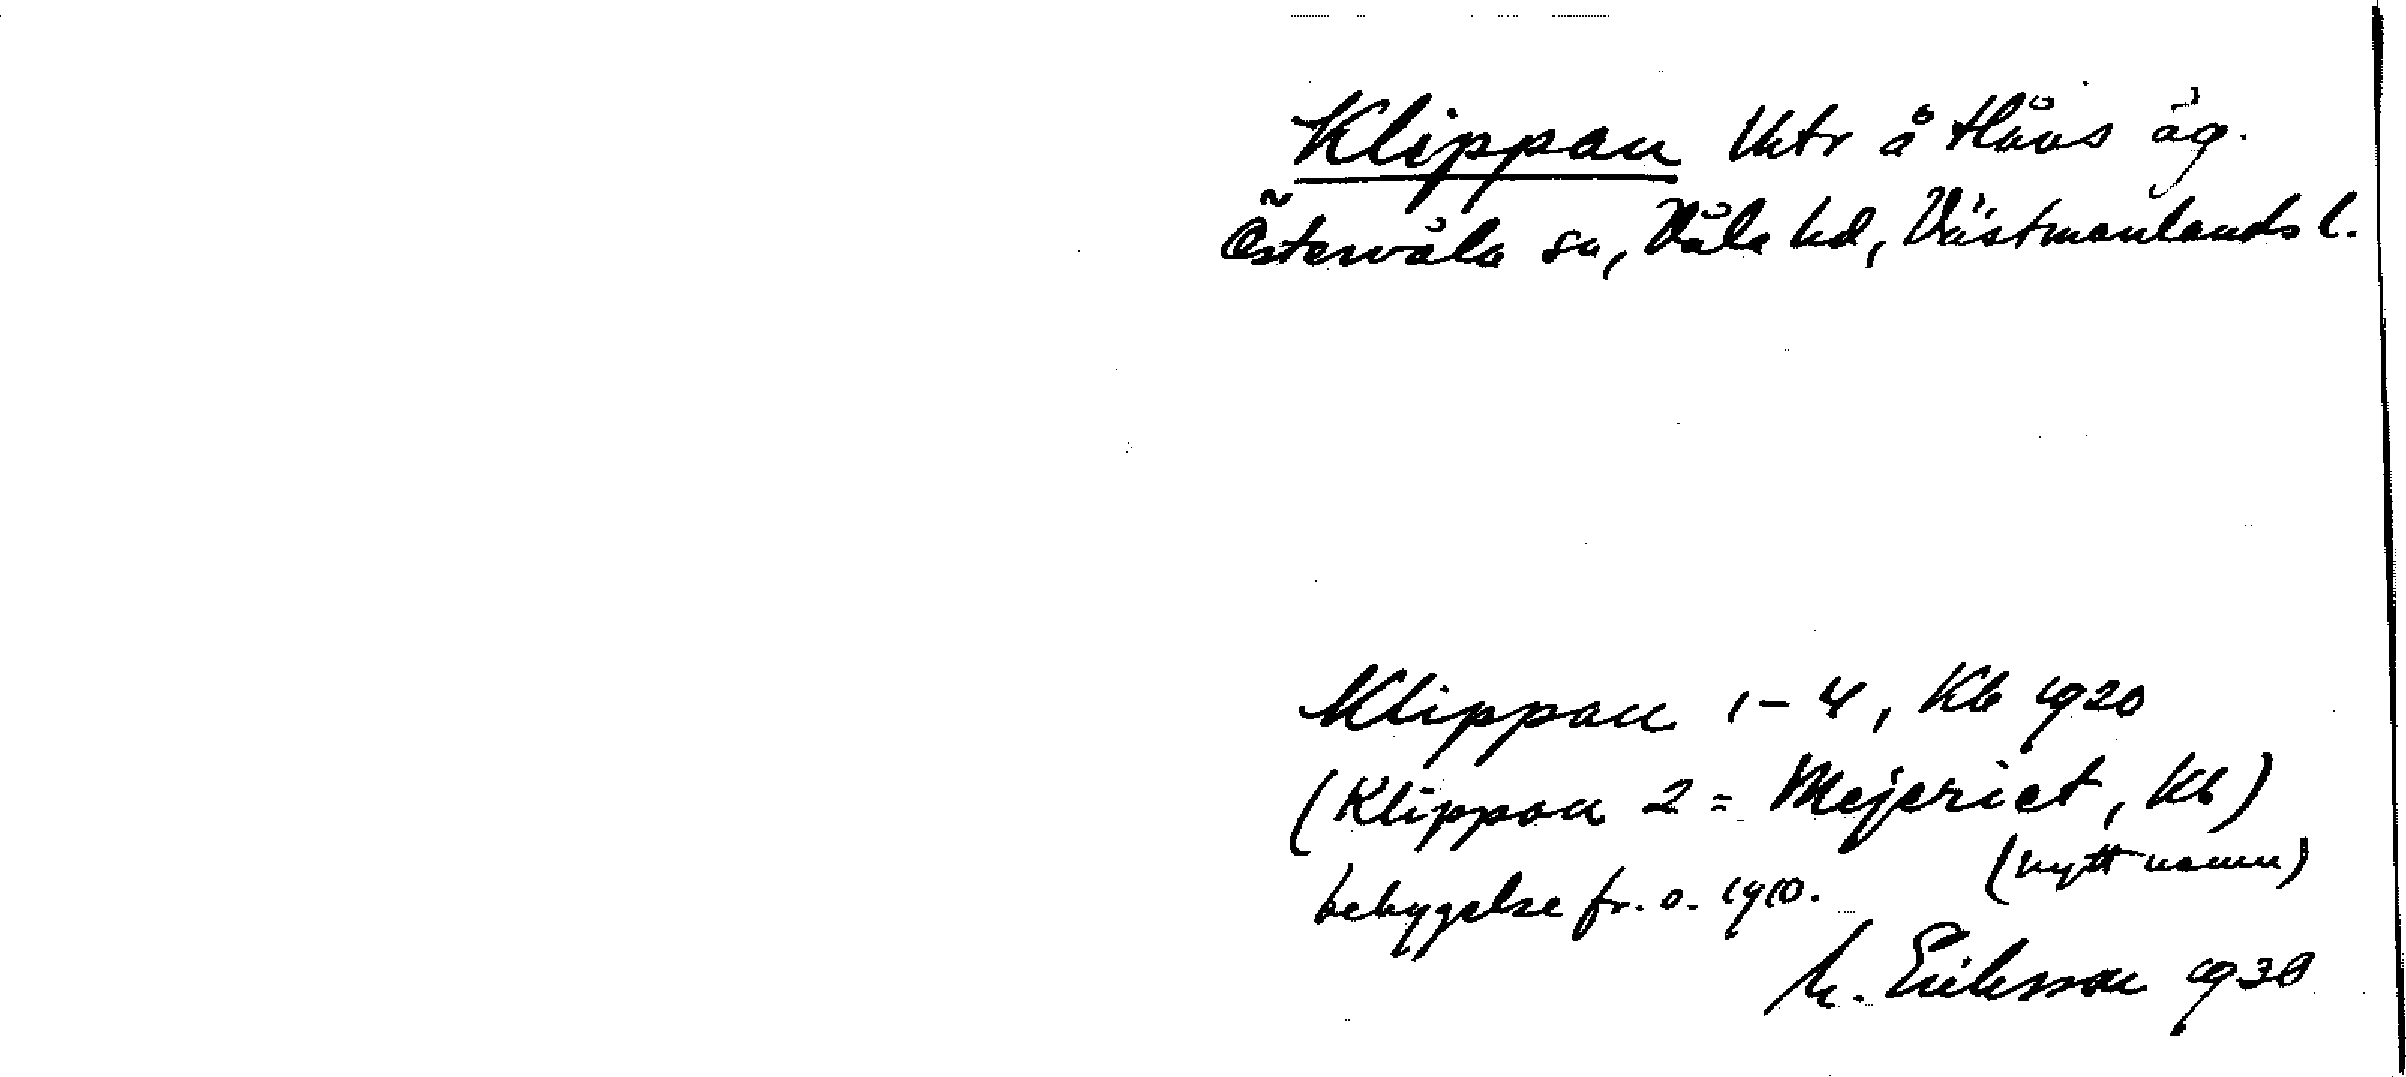 Klippan lktr å Hovs äg.
Östervåla sn, Våla hd, Västmanlands l.
Klippan 1-4, Kb 1920
(Klippan 2 = Mejeriet, Kb)
(nytt namn)
bebygelse fr. o. 1910.
M. Eriksson 1930